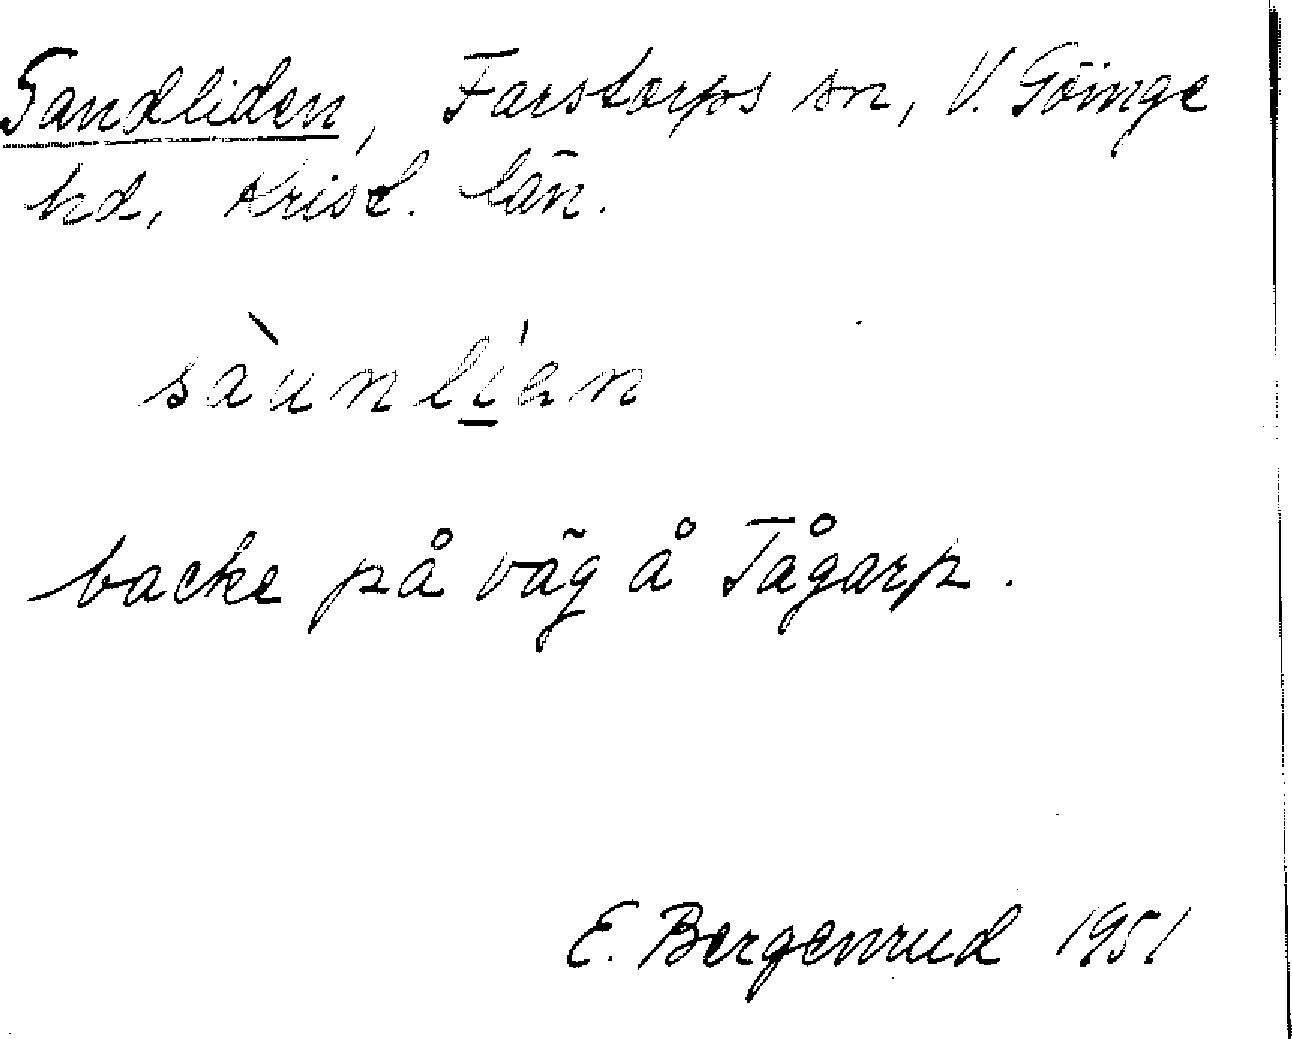 Sandliden, Farstorps sn, V. Göinge
hd, Krist. län.
sàunlíen
backe på väg å Tågarp.
E. Bergenrud 1951